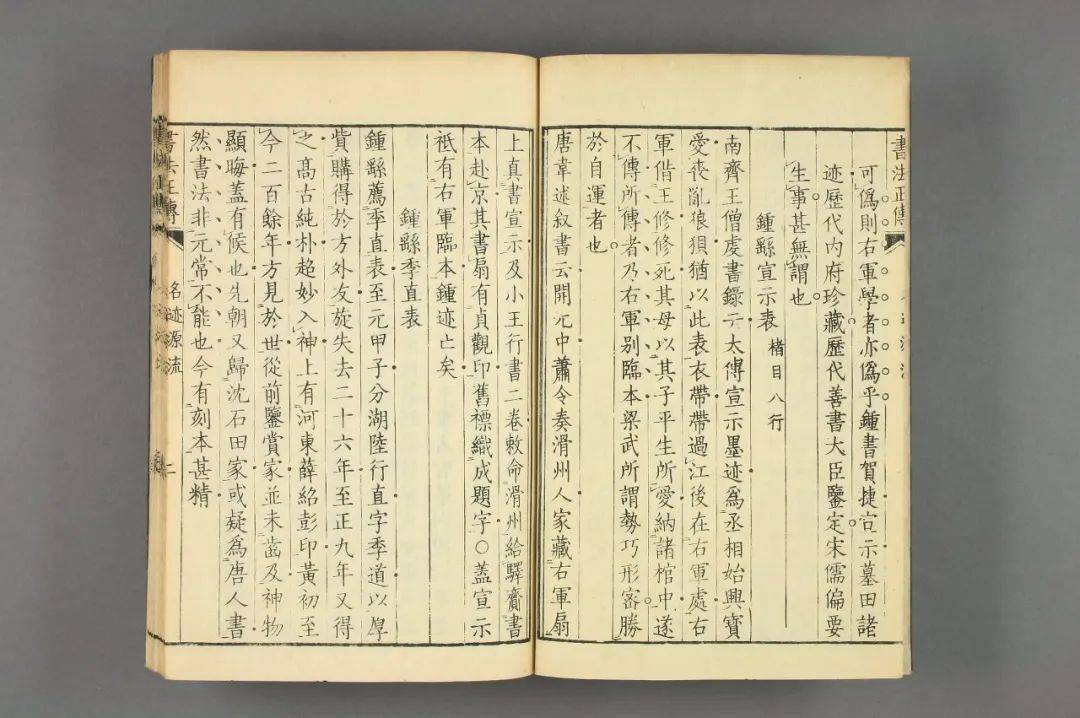 書法正傳
可僞則右軍學者亦僞乎鍾書賀捷宣示墓田諸
迹歷代内府珍藏歷代善書大臣鑒定宋儒偏要
生事甚無謂也
鍾繇宣示表 楷目八行
南齊王僧虔書錄云太傅宣示墨迹爲丞相始興寶
愛喪亂狼狽猶以此表衣帶帶過江後在右軍處右
軍借王修修死其母以其子平生所愛納諸棺中遂
不傳所傳者乃右軍别臨本梁武所謂勢巧形密勝
於自運者也
唐韋述叙書云開元中蕭令奏滑州人家藏右軍扇
上真書宣示及小王行書二卷敕命滑州給驛齎書
本赴京其書扇有貞觀印舊褾織成題字〇蓋宣示
祇有右軍臨本鍾迹亡矣
鍾繇季直表
鍾繇薦季直表至元甲子分湖陸行直字季道以厚
貲購得於方外友旋失去二十六年至正九年又得
之髙古純朴超妙入神上有河東薛紹彭印黃初至
今二百餘年方見於世從前鑒賞家並未齒及神物
顯晦蓋有候也先朝又歸沈石田家或疑爲唐人書
然書法非元常不能也今有刻本甚精
書法正傳
名迹源流
二